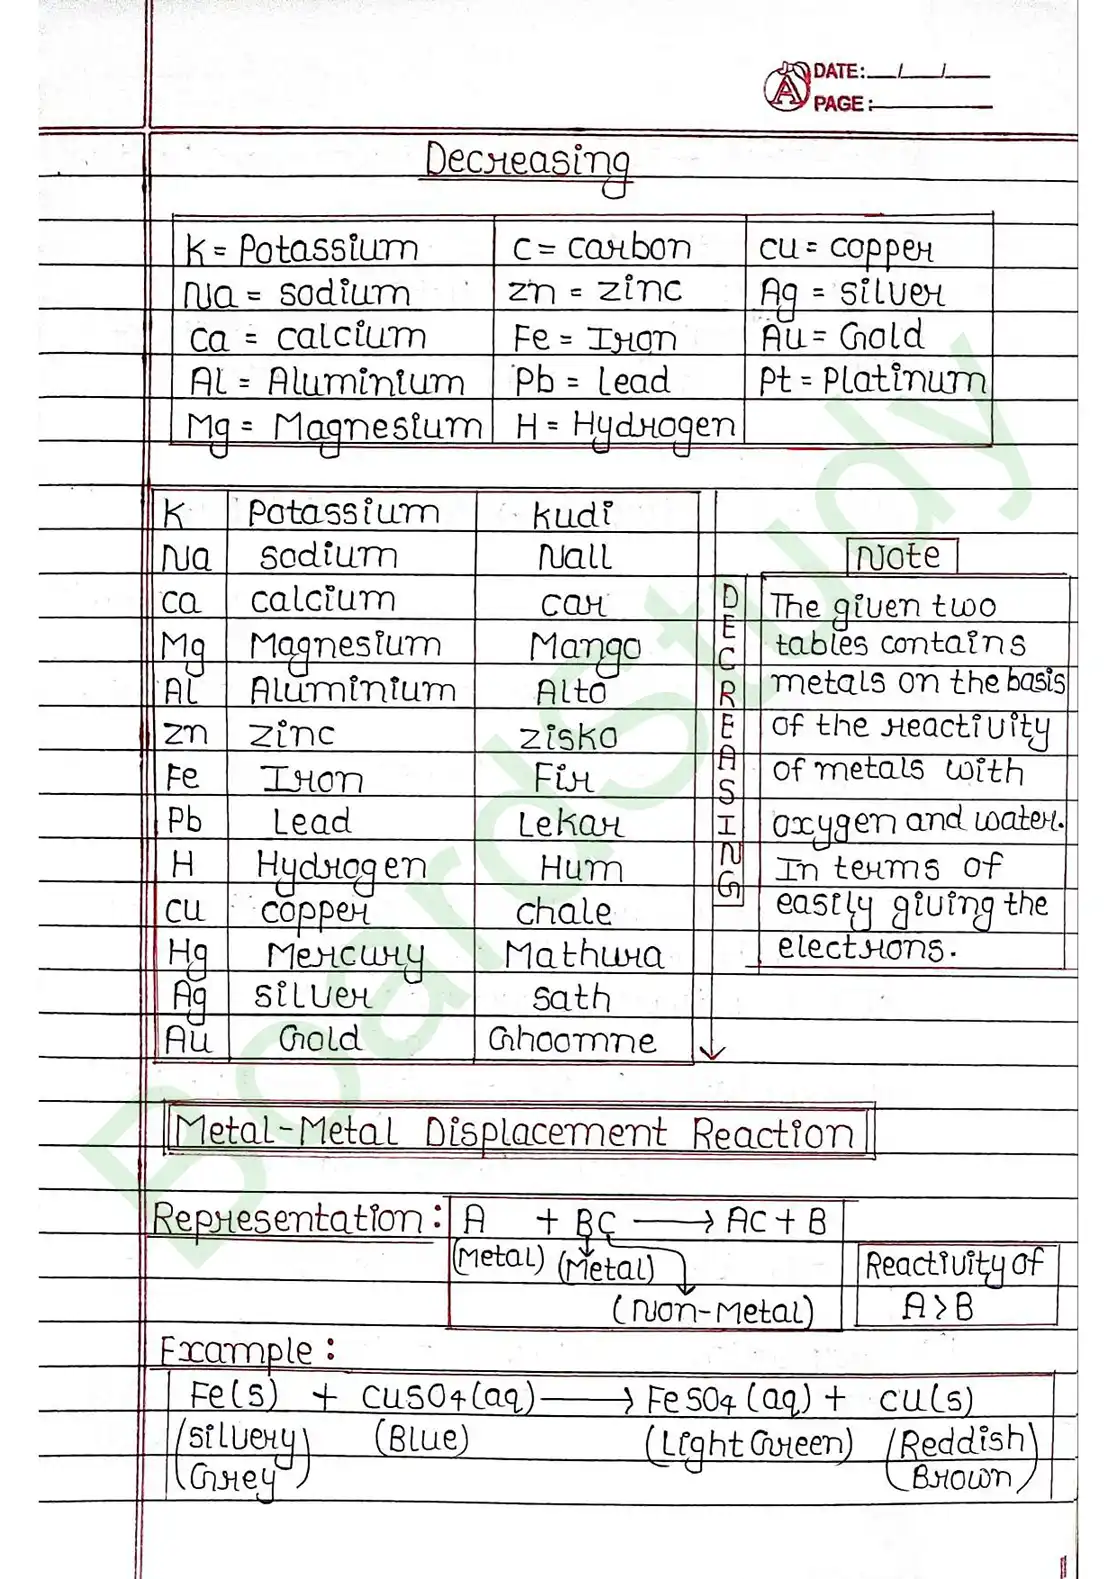 DATE:__/__/__
PAGE:______
Decreasing
K = Potassium C = carbon cu = copper
Na = sodium zn = zinc Ag = silver
ca = calcium Fe = Iron Au = Gold
Al = Aluminium Pb = Lead Pt = Platinum
Mg = Magnesium H = Hydrogen
K Potassium Kudi
Na sodium Nall
ca calcium car
Mg Magnesium Mango
Al Aluminium Alto
zn zinc zisko
Fe Iron Fir
Pb Lead Lekar
H Hydrogen Hum
cu copper chale
Hg Mercury Mathura
Ag silver sath
Au Gold Ghoomne
DECREASING
Note
The given two
tables contains
metals on the basis
of the reactivity
of metals with
oxygen and water.
In terms of
easily giving the
electrons.
Metal-Metal Displacement Reaction
Representation: A + BC → AC + B
(Metal) (Metal)
(Non-Metal)
Reactivity of
A > B
Example:
Fe(s) + cuSO4(aq) → FeSO4(aq) + cu(s)
(Silvery (Blue) (Light Green) (Reddish
Grey) Brown)
BoardStudy